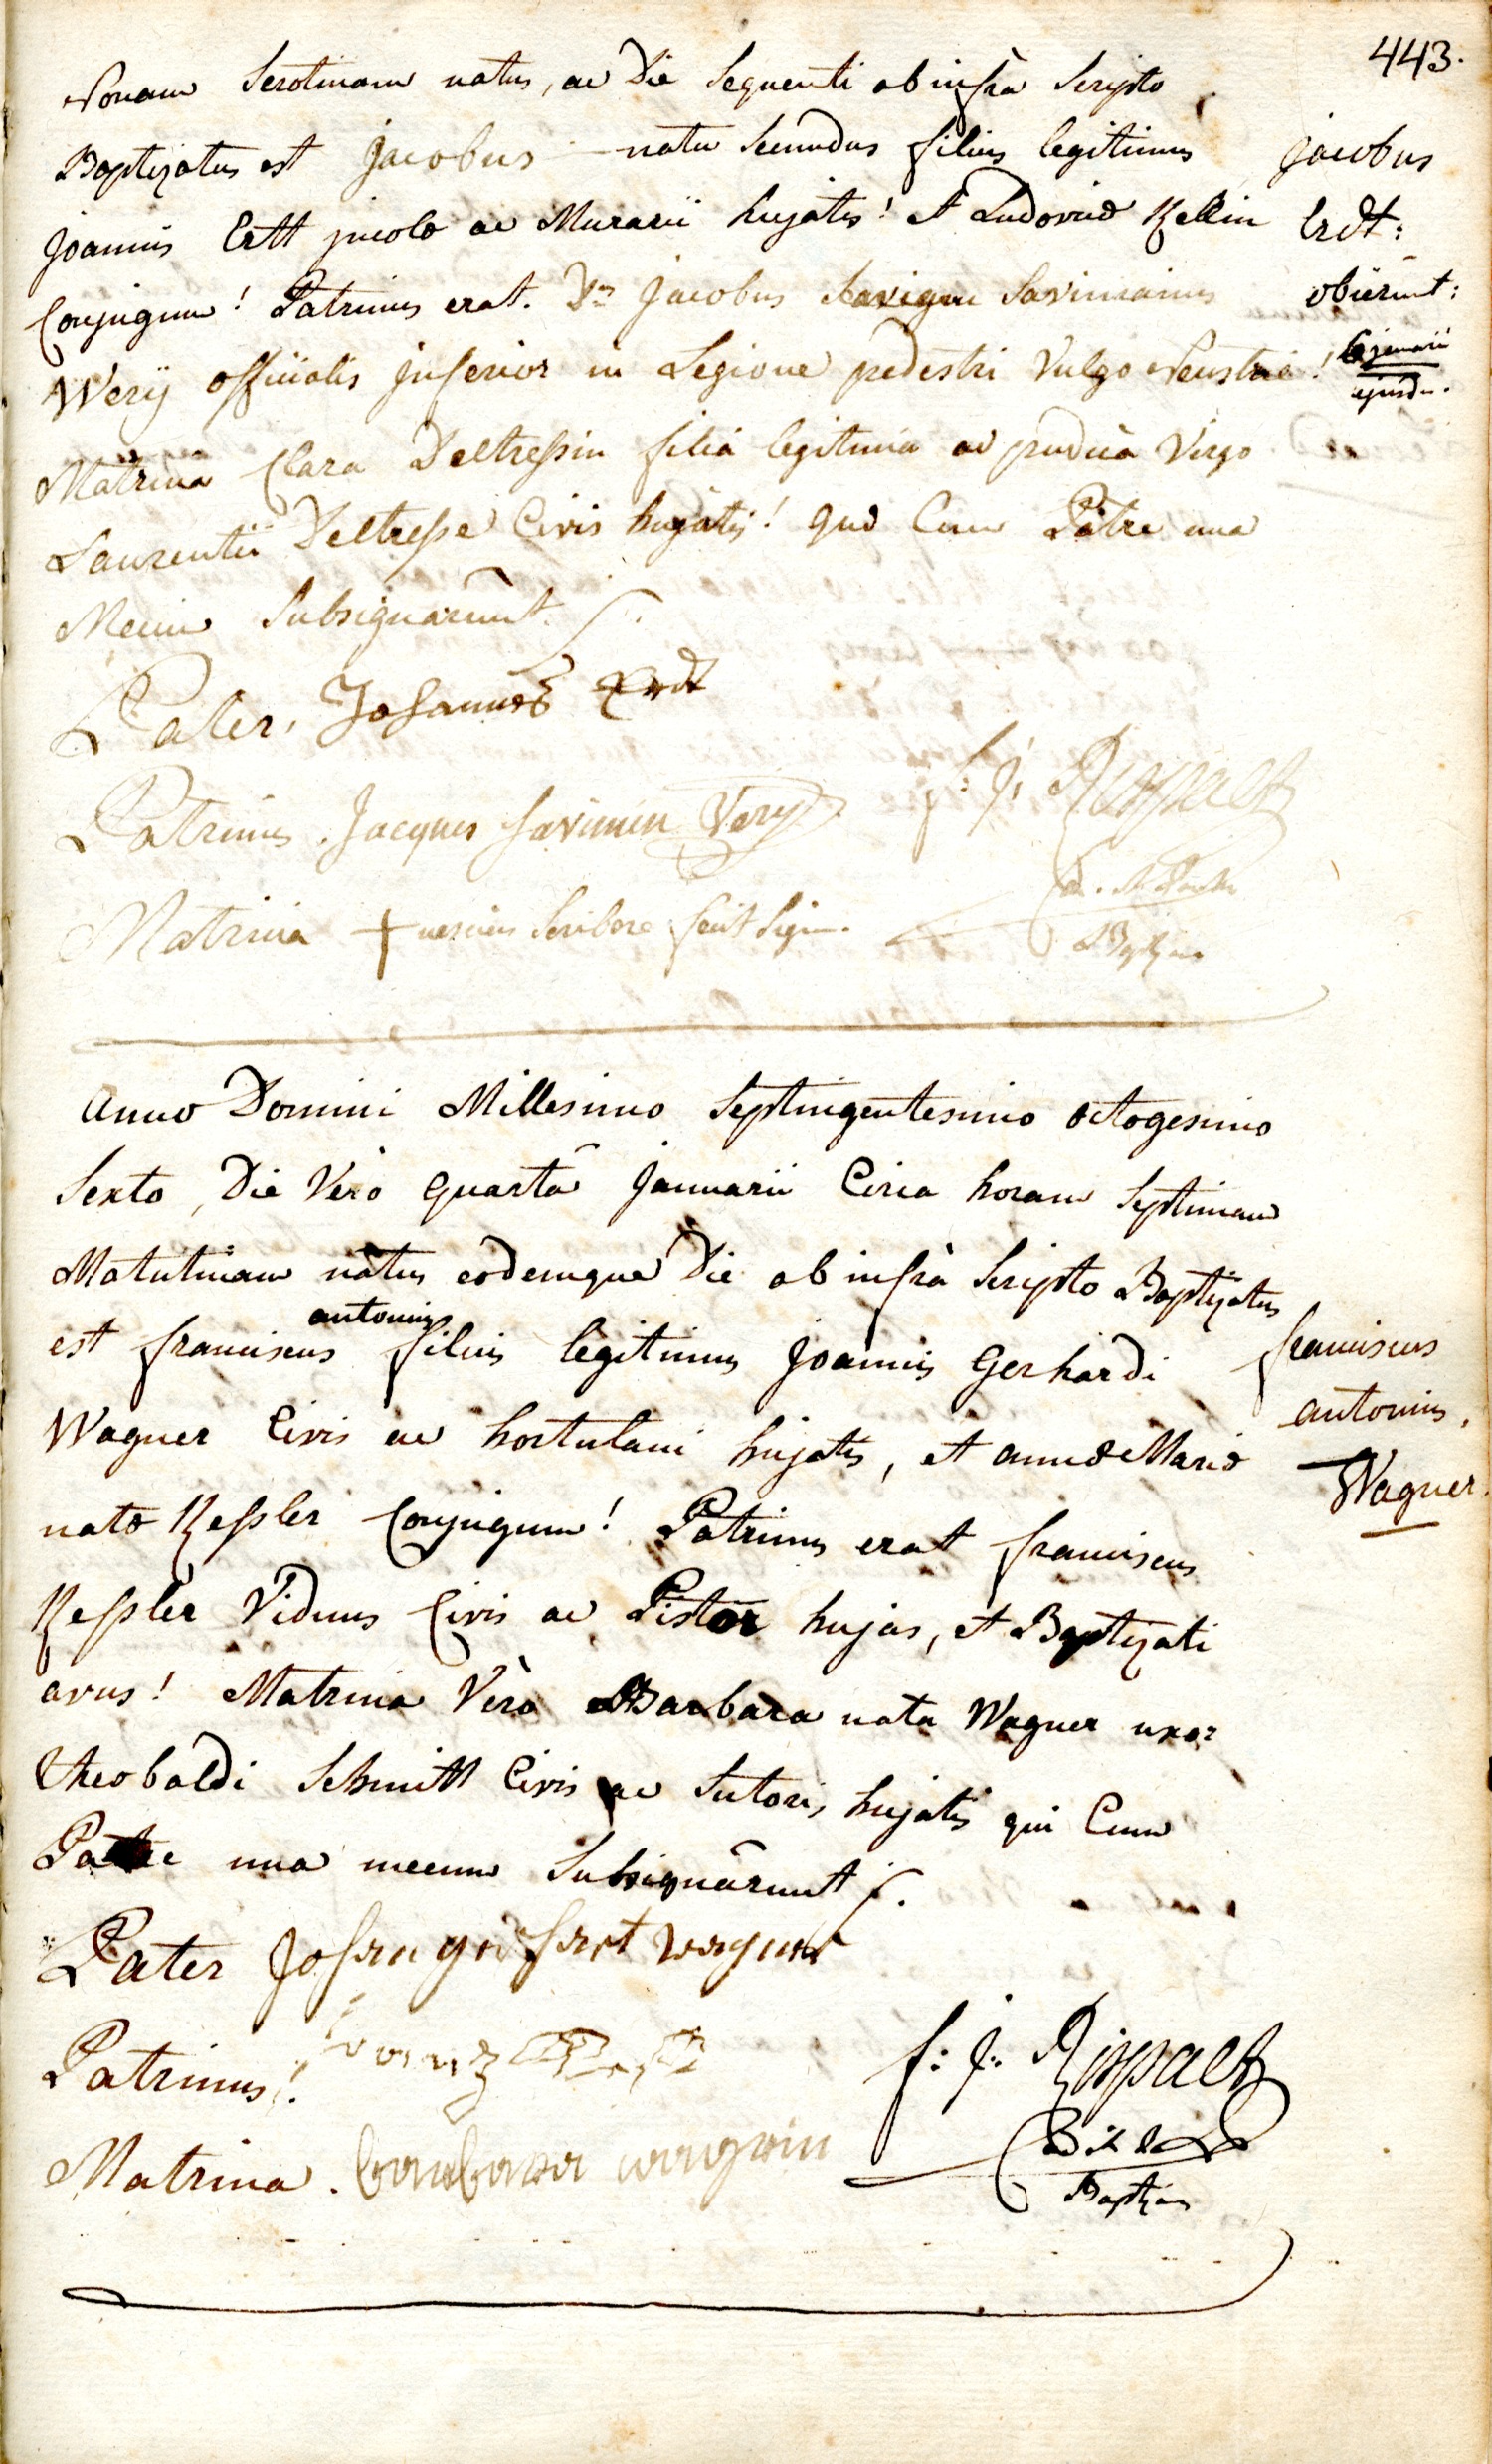 443.
Nonam Serotinam natus, ac Die Sequenti ab infrà Scripto
Baptizatus est Jacobus natu Secundus filius legitimus
Jacobus
Joannis Ertt incolæ ac Murarii hujatis! et Ludovicæ Kellin
Erdt:
Conjugum! Patrinus erat. Dns Jacobus Savinianus
obierunt:
Wery officialis inferior in Legione pedestri Vulgo Neustrie!
gemini
ejusd.
Matrina Clara Deltressin filia legitima ac pudica Virgo
Laurentii Deltresse Civis hujatis! qui Cum Patre una
Mecum Subsignarunt.
Pater, Johannes Erdt
Patrinus. Jacques Savinien Very
f: J:
Matrina + nesciens Scribere fecit Sign.
Baptizans
Anno Domini Millesimo Septingentesimo octogesimo
Sexto, Die Verò quarta Januarii Circa horam Septimam
Matutinam natus eodemque Die ab infrà Scripto Baptizatus
antonius
est franciscus filius legitimus Joannis Gerhardi
franciscus
antonius.
Wagner Civis ac hortulani hujatis, et annæ Mariæ
Wagner.
natæ Kessler Conjugum! Patrinus erat franciscus
Kessler Viduus Civis ac Pistor hujas, et Baptizati
avus! Matrina Verò Barbara nata Wagner uxor
Theobaldi Schmitt Civis ac Sutoris hujatis qui Cum
Patre una mecum Subsignarunt
Pater Johan gerhart wagner
Patrinus!
f: J:
Matrina. barbara wagnerin
Baptizans